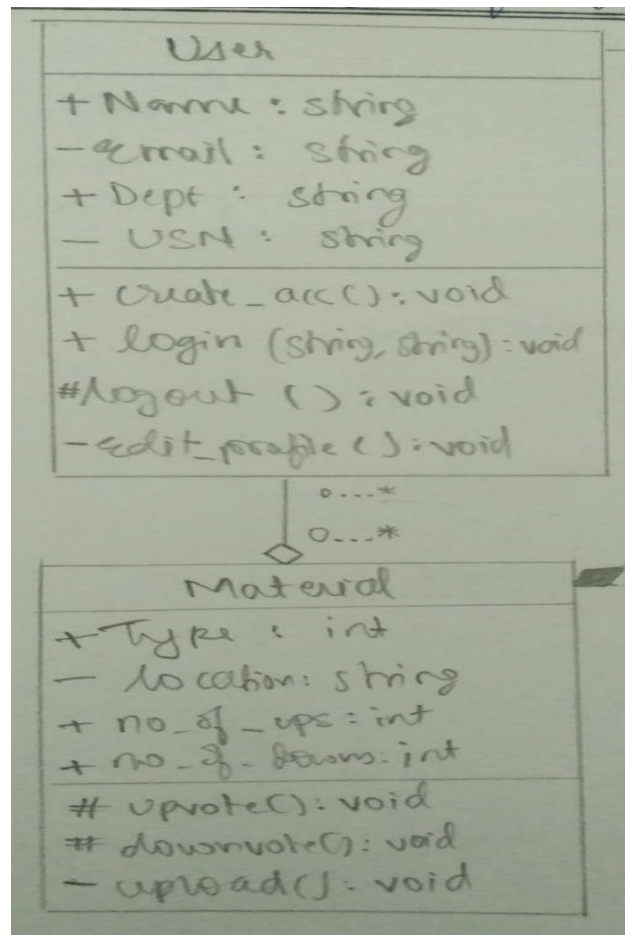 User
+ Name : string
- Email : string
+ Dept : string
- USN : string
+ create_acc() : void
+ login (string, string) : void
# logout () : void
- edit_profile () : void
0...*
0...*
Material
+ Type : int
- location : string
+ no_of_ups : int
+ no_of_downs : int
# upvote() : void
# downvote() : void
- upload() : void